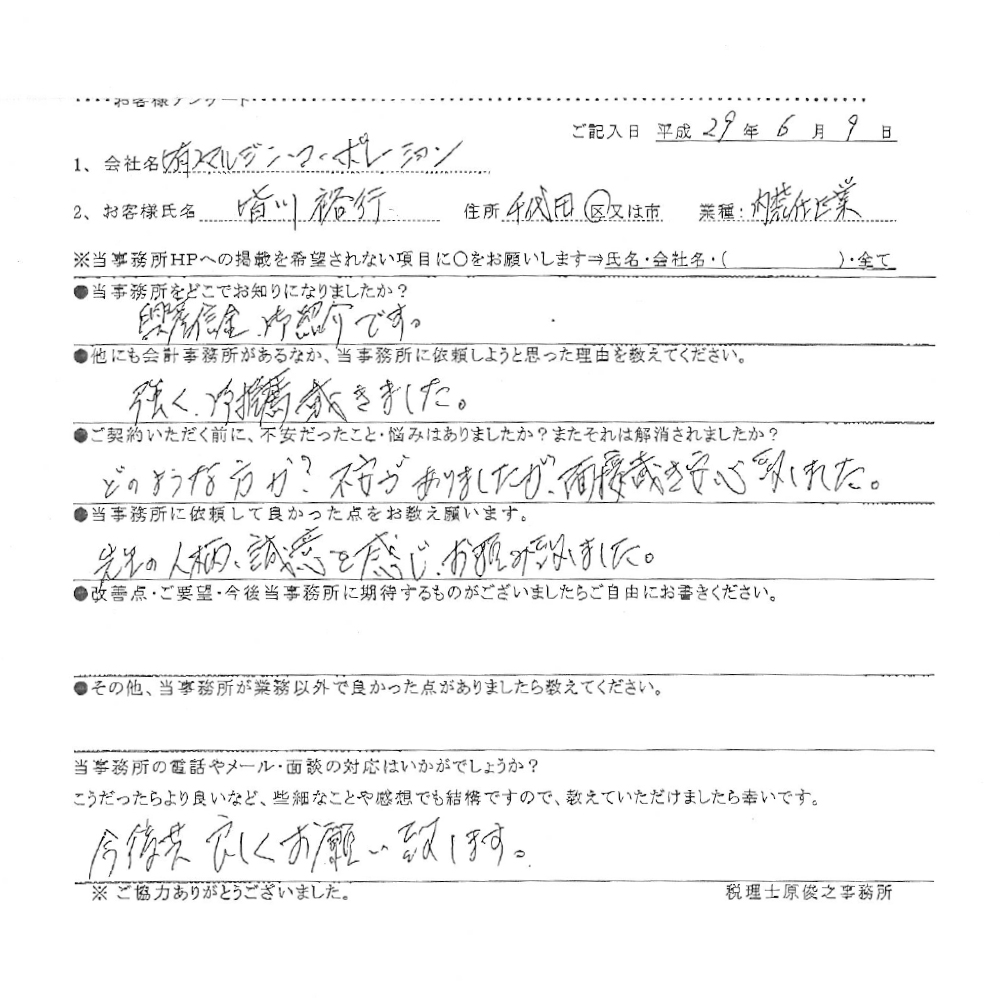 お客様アンケート
ご記入日 平成 29 年 6 月 9 日
1、会社名 (有)マルジン・コーポレーション
2、お客様氏名 皆川 裕行 住所 千代田 区又は市 業種: 内装仕上業
※当事務所HPへの掲載を希望されない項目に○をお願いします⇒氏名・会社名・( )・全て
●当事務所をどこでお知りになりましたか?
興産信金、御紹介です。
●他にも会計事務所があるなか、当事務所に依頼しようと思った理由を教えてください。
強く、御推薦戴きました。
●ご契約いただく前に、不安だったこと・悩みはありましたか?またそれは解消されましたか?
どのような方か?不安がありましたが、面接戴き安心致しました。
●当事務所に依頼して良かった点をお教え願います。
先生の人柄、誠意を感じ、お頼み致しました。
●改善点・ご要望・今後当事務所に期待するものがございましたらご自由にお書きください。
●その他、当事務所が業務以外で良かった点がありましたら教えてください。
当事務所の電話やメール・面談の対応はいかがでしょうか?
こうだったらより良いなど、些細なことや感想でも結構ですので、教えていただけましたら幸いです。
今後共良しくお願い致します。
※ ご協力ありがとうございました。 税理士原俊之事務所